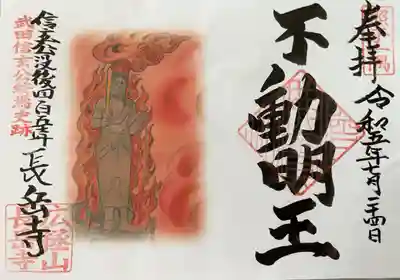 奉拝 令和五年七月二十四日
不動明王
長岳寺
広拯山
長岳寺
信玄公没後四百五十年
武田信玄公終焉之跡